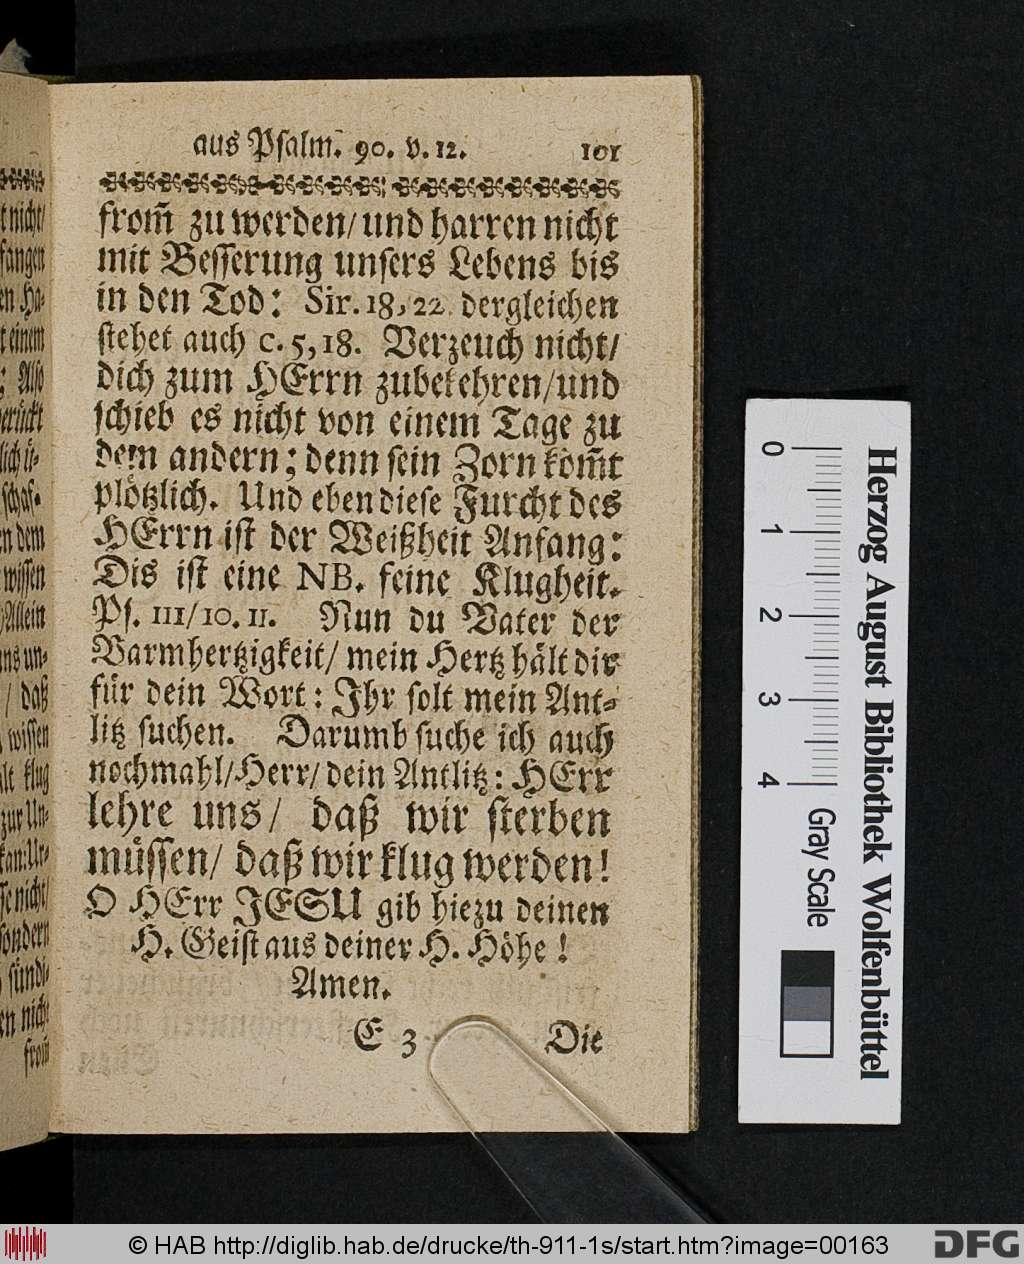 aus Psalm. 90. v. 12. 101
from̃ zu werden/ und harren nicht
mit Besserung unsers Lebens bis
in den Tod: Sir. 18, 22. dergleichen
stehet auch c. 5, 18. Verzeuch nicht/
dich zum HErrn zubekehren/und
schieb es nicht von einem Tage zu
dem andern; denn sein Zorn kom̃t
plötzlich. Und eben diese Furcht des
HErrn ist der Weißheit Anfang:
Dis ist eine NB. feine Klugheit.
Ps. 111/10. 11. Nun du Vater der
Barmhertzigkeit/ mein Hertz hält dir
für dein Wort: Ihr solt mein Ant-
litz suchen. Darumb suche ich auch
nochmahl/Herr/ dein Antlitz: HErr
lehre uns/ daß wir sterben
müssen/ daß wir klug werden!
O HErr JESU gib hiezu deinen
H. Geist aus deiner H. Höhe!
Amen.
E 3 Die
t nicht/
fangen
en Ha-
t einem
; Also
erückt
lich ü-
schaf-
n dem
wissen
Allein
ns un-
/ daß
wissen
lt klug
zur Un-
se nicht/
sondern
sündi-
en nicht
from̃
0 1 2 3 4
Gray Scale
Herzog August Bibliothek Wolfenbüttel
© HAB http://diglib.hab.de/drucke/th-911-1s/start.htm?image=00163
DFG